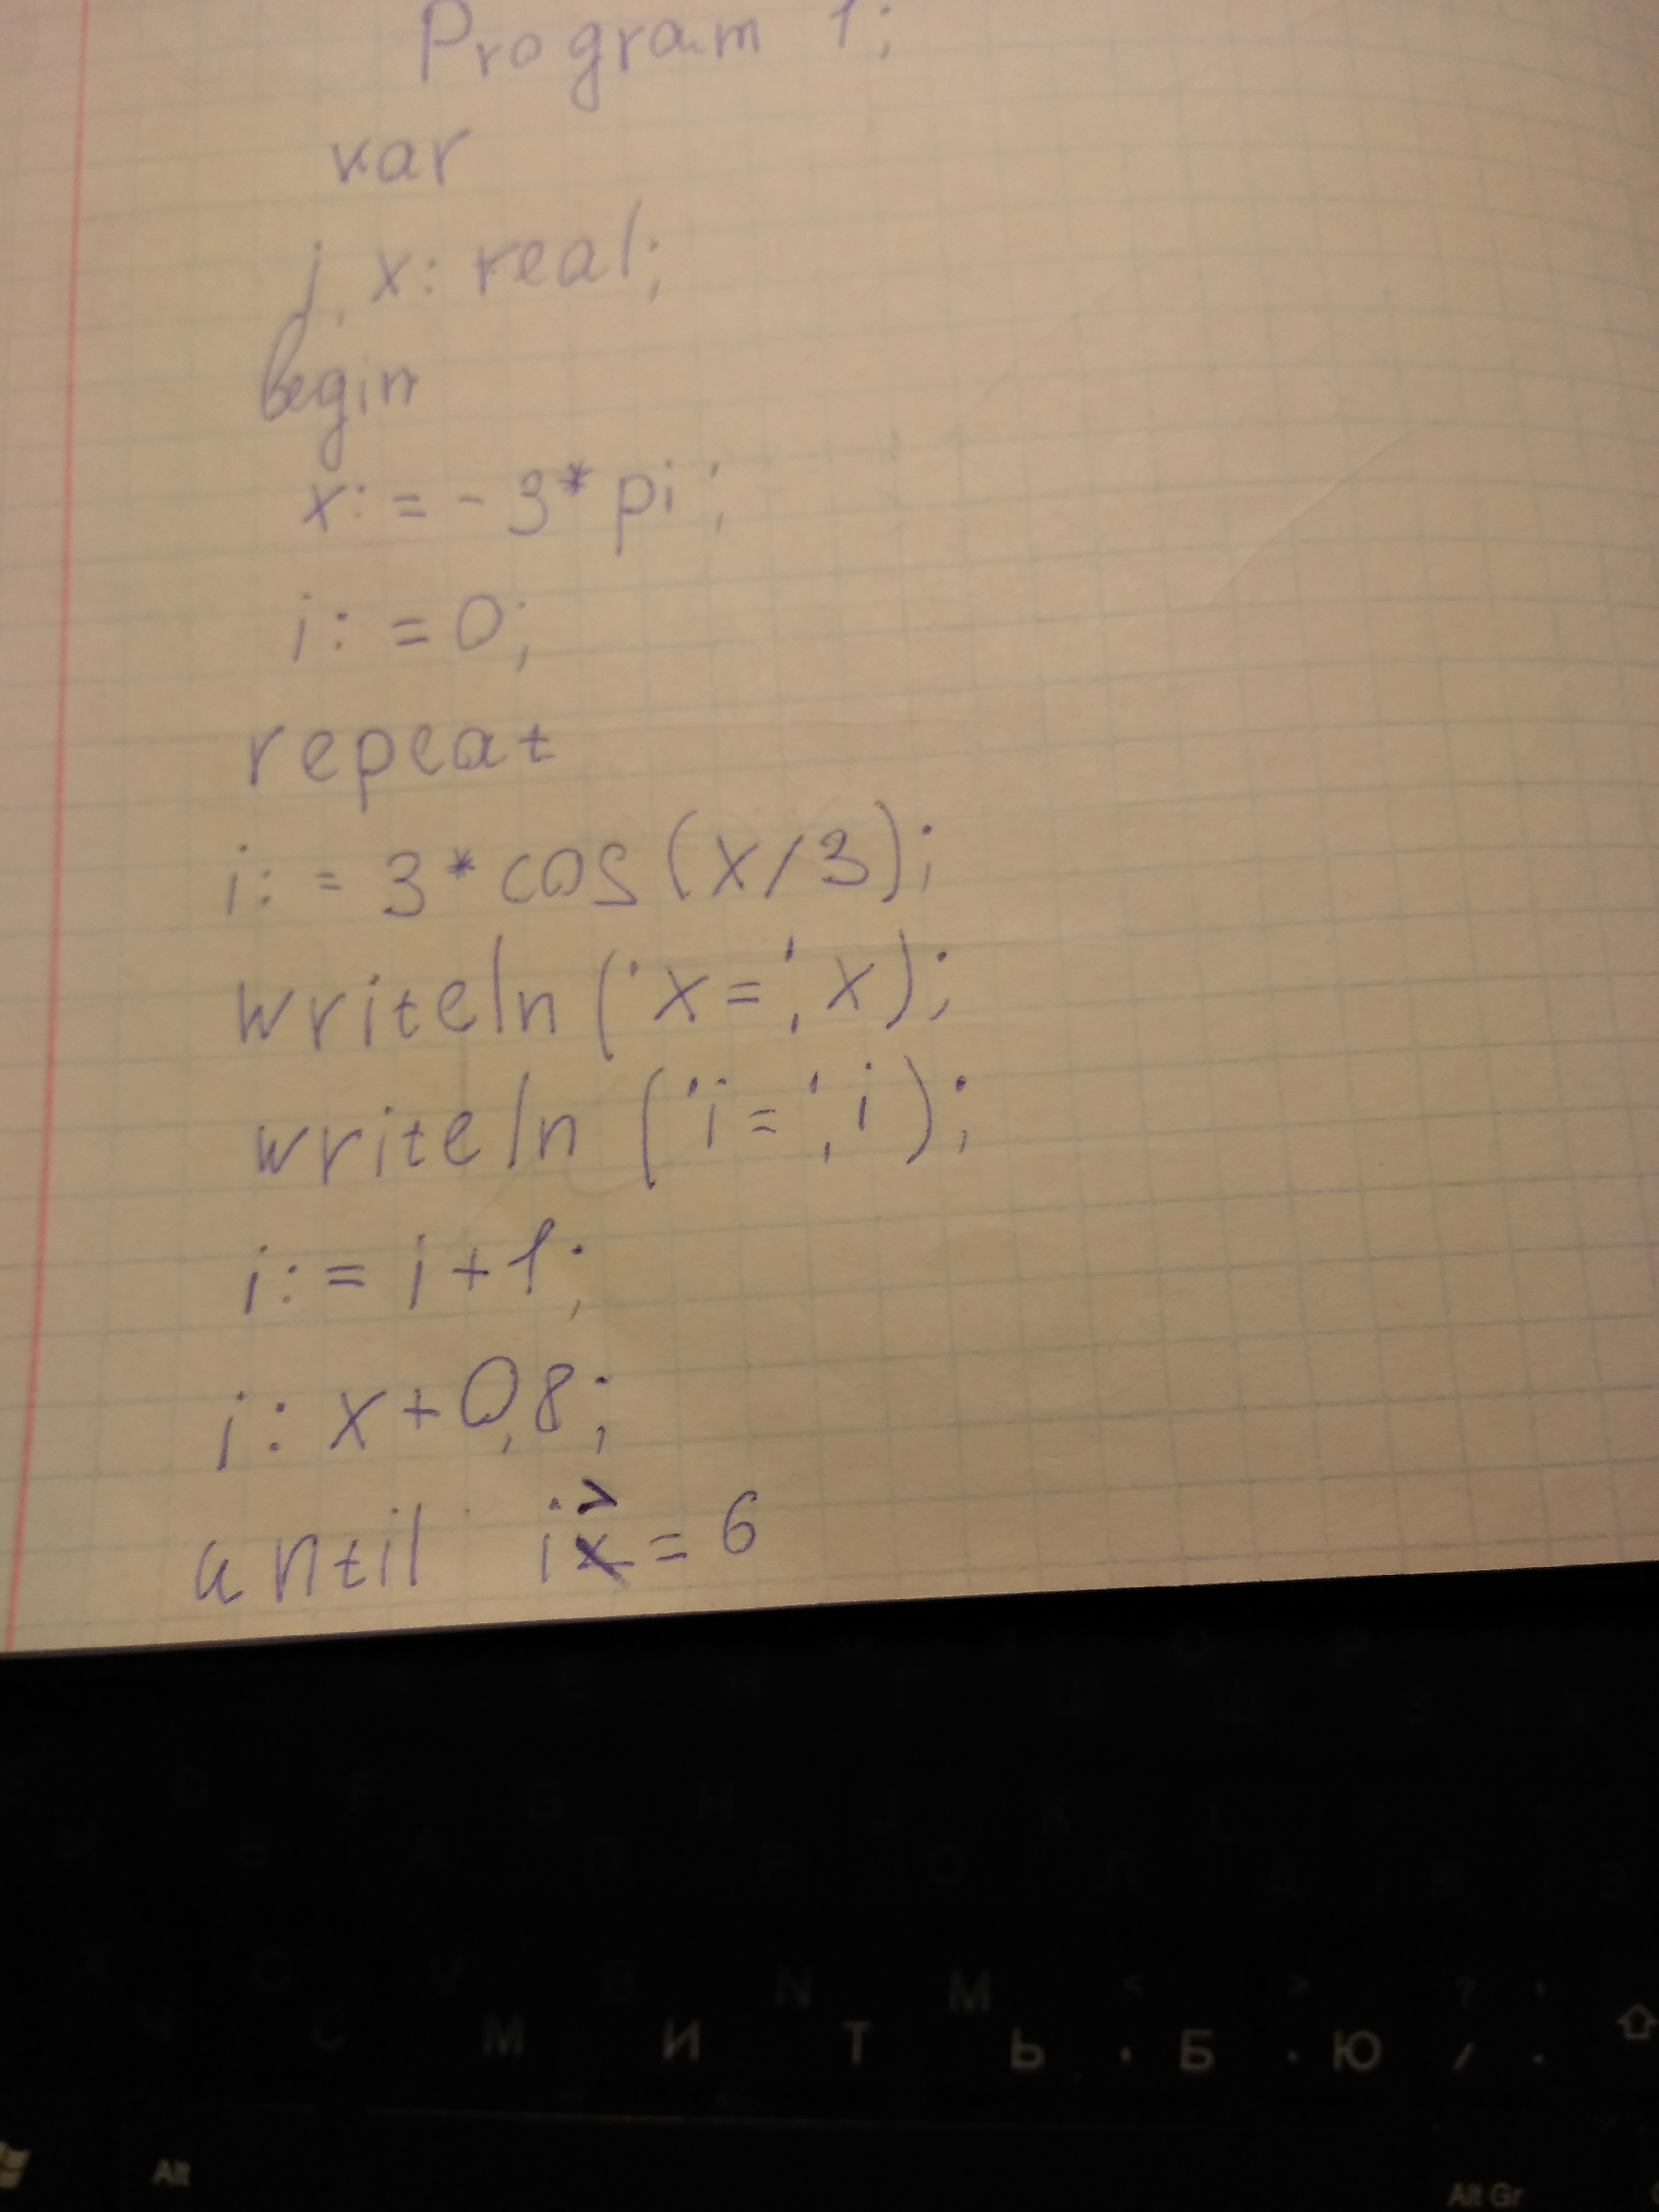 Program 1;
var
i, x: real;
begin
x:=-3*pi;
i:=0;
repeat
i:=3*cos(x/3);
writeln('x=',x);
writeln('i=',i);
i:=i+1;
i: x+0,8;
until i>=6
O P
E H Г Ш Щ З Х
D F G H J K L
Ы В А П Р О Л Д Ж Э
X C V B N M < > ?
Ч С М И Т Ь Б Ю /
Alt Alt Gr